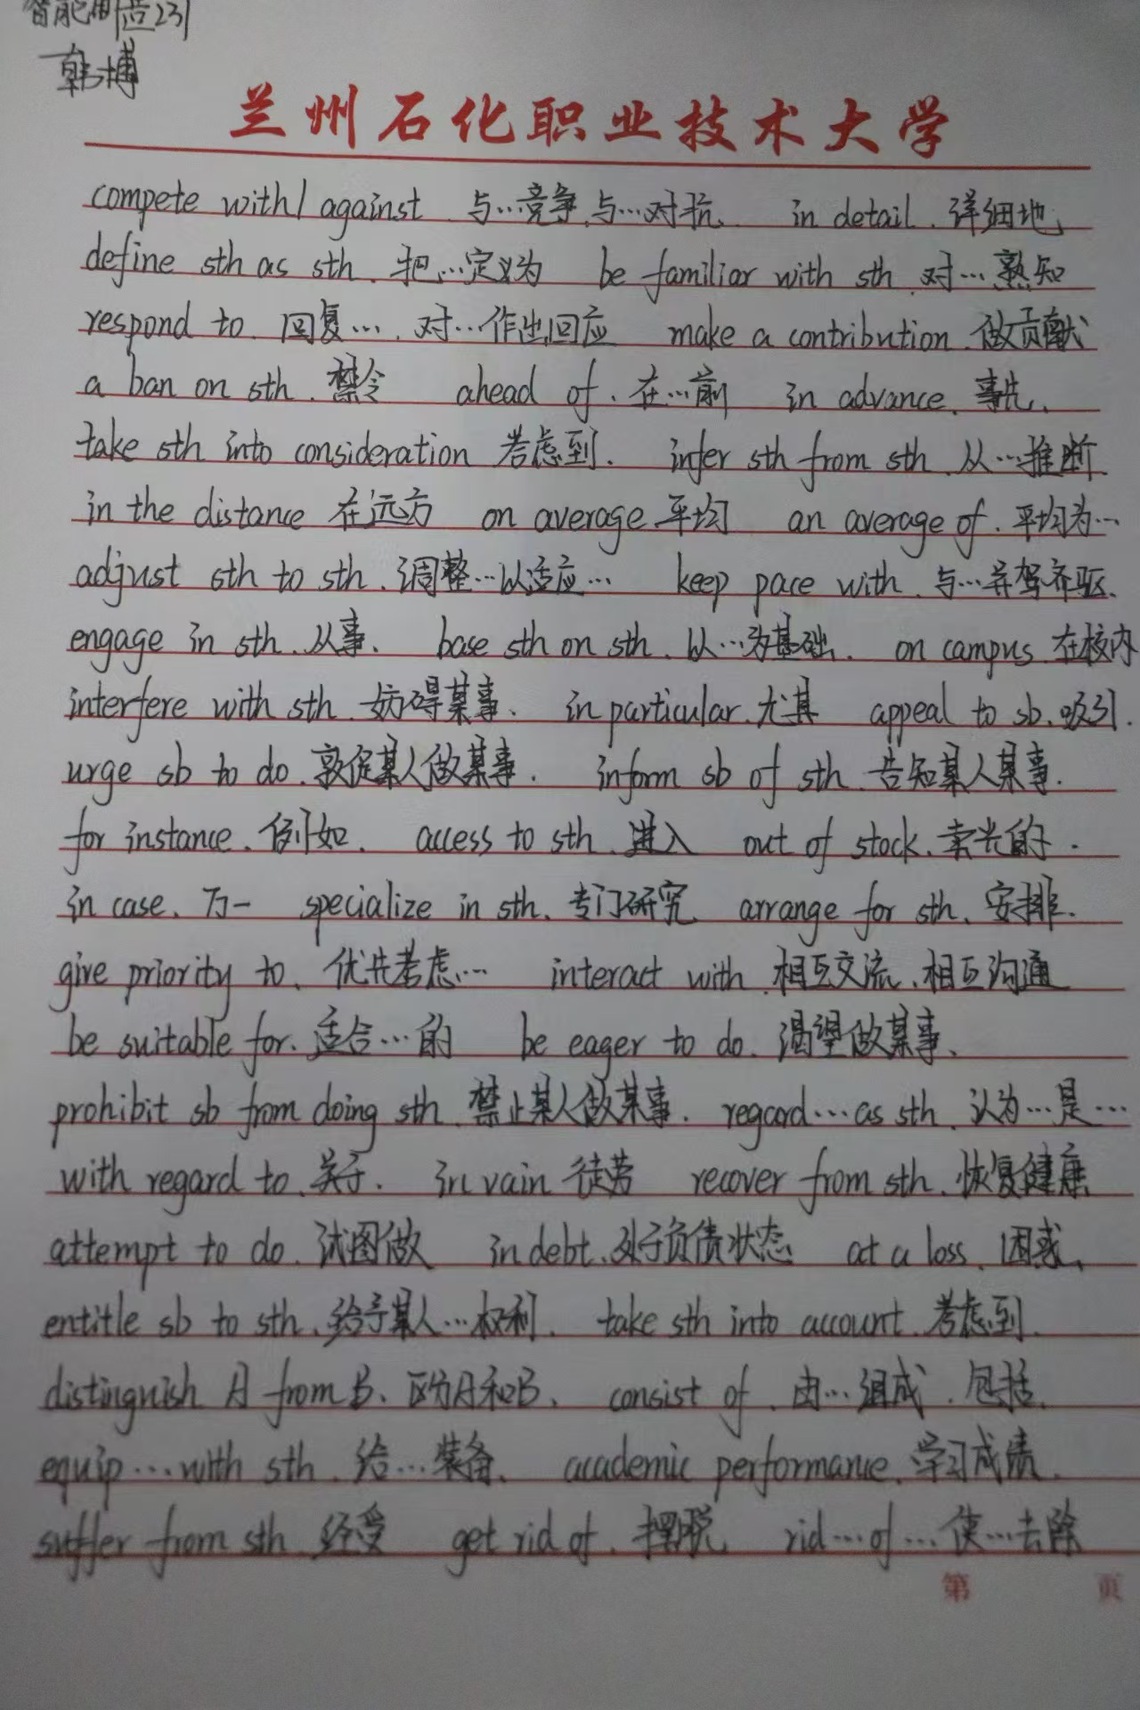 智能制造231
韩博
兰州石化职业技术大学
compete with/against 与…竞争,与…对抗、 in detail.详细地
define sth as sth. 把…定义为 be familiar with sth.对…熟知
respond to. 回复…. 对…作出回应 make a contribution.做贡献
a ban on sth.禁令 ahead of.在…前 in advance.事先、
take sth into consideration 考虑到. infer sth from sth.从…推断
in the distance 在远方 on average 平均 an average of.平均为…
adjust sth to sth.调整…以适应… keep pace with.与…并驾齐驱.
engage in sth.从事、 base sth on sth.以…为基础. on campus.在校内
interfere with sth.妨碍某事、 in particular.尤其 appeal to sb.吸引.
urge sb to do.敦促某人做某事. inform sb of sth.告知某人某事.
for instance.例如. access to sth.进入 out of stock.卖光的.
in case.万一 specialize in sth.专门研究 arrange for sth.安排.
give priority to.优先考虑… interact with.相互交流.相互沟通
be suitable for.适合…的 be eager to do.渴望做某事、
prohibit sb from doing sth.禁止某人做某事. regard…as sth.认为…是…
with regard to.关于. in vain 徒劳 recover from sth.恢复健康
attempt to do.试图做 in debt.处于负债状态 at a loss.困惑、
entitle sb to sth.给予某人…权利. take sth into account.考虑到.
distinguish A from B.区分A和B. consist of.由…组成.包括.
equip…with sth.给…装备、 academic performance.学习成绩.
suffer from sth.经受 get rid of.摆脱 rid…of…使…去除
第 页